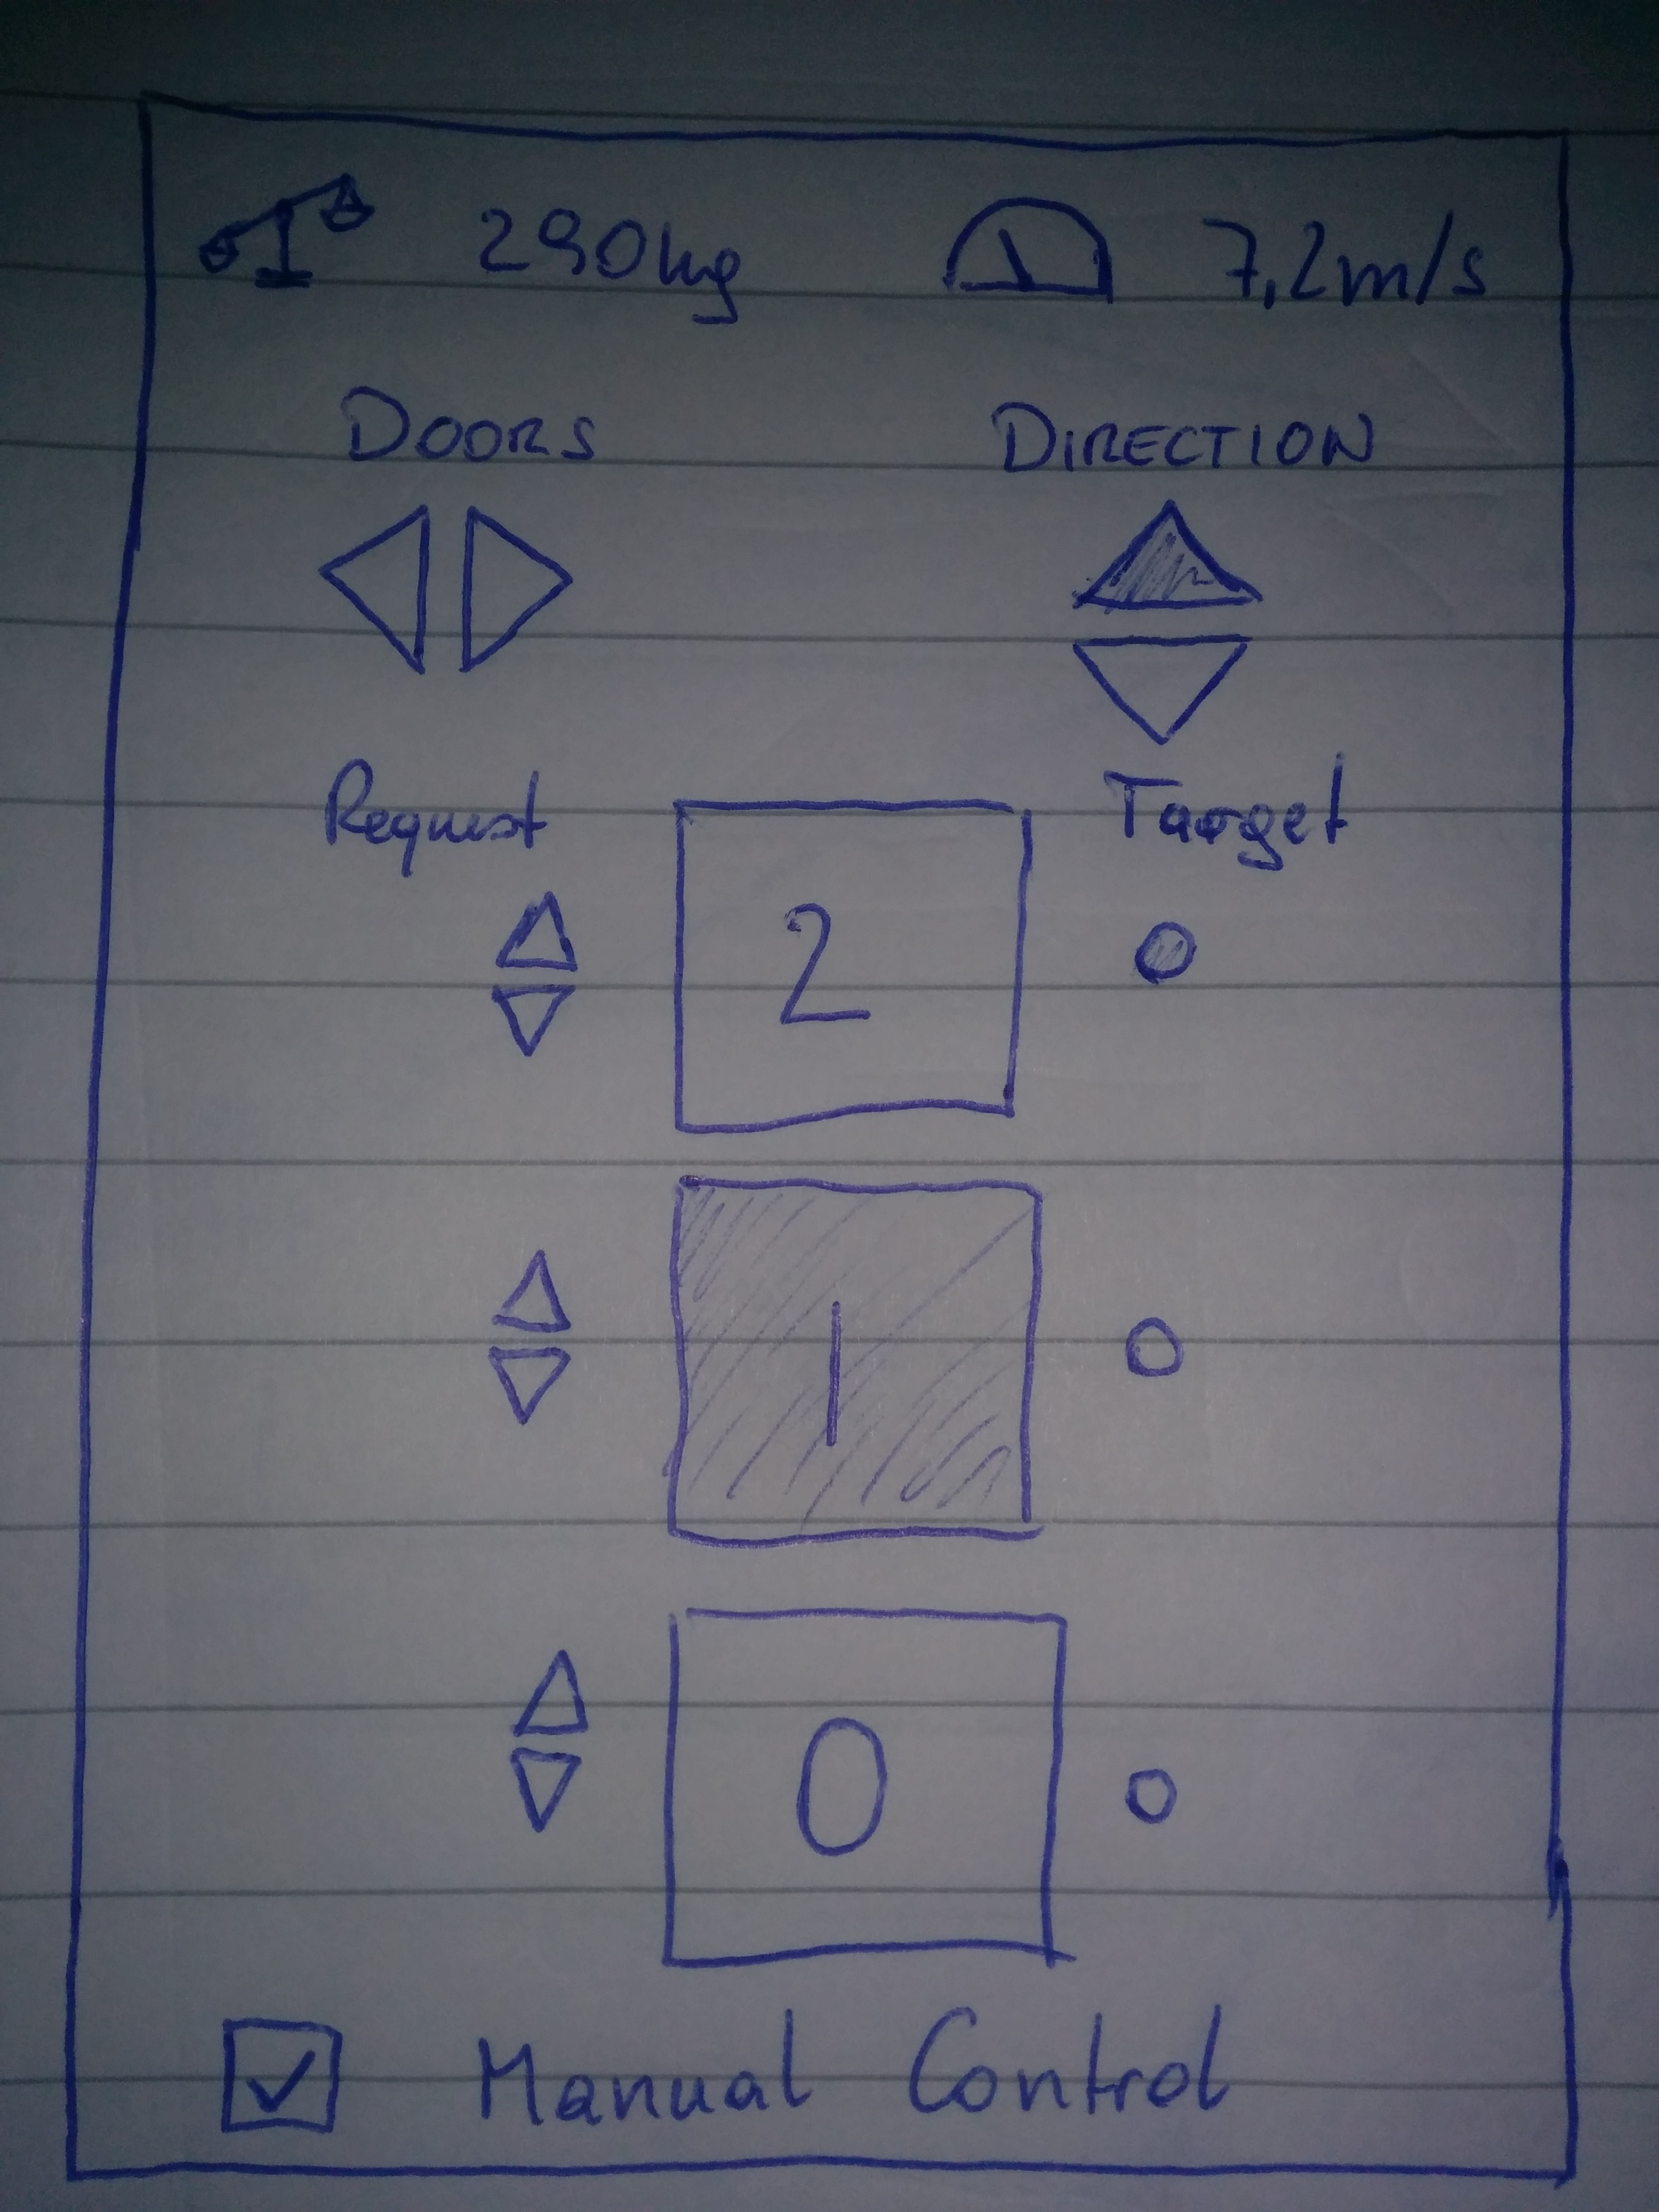 290kg 7,2m/s
DOORS DIRECTION
Request Target
2
1
0
Manual Control